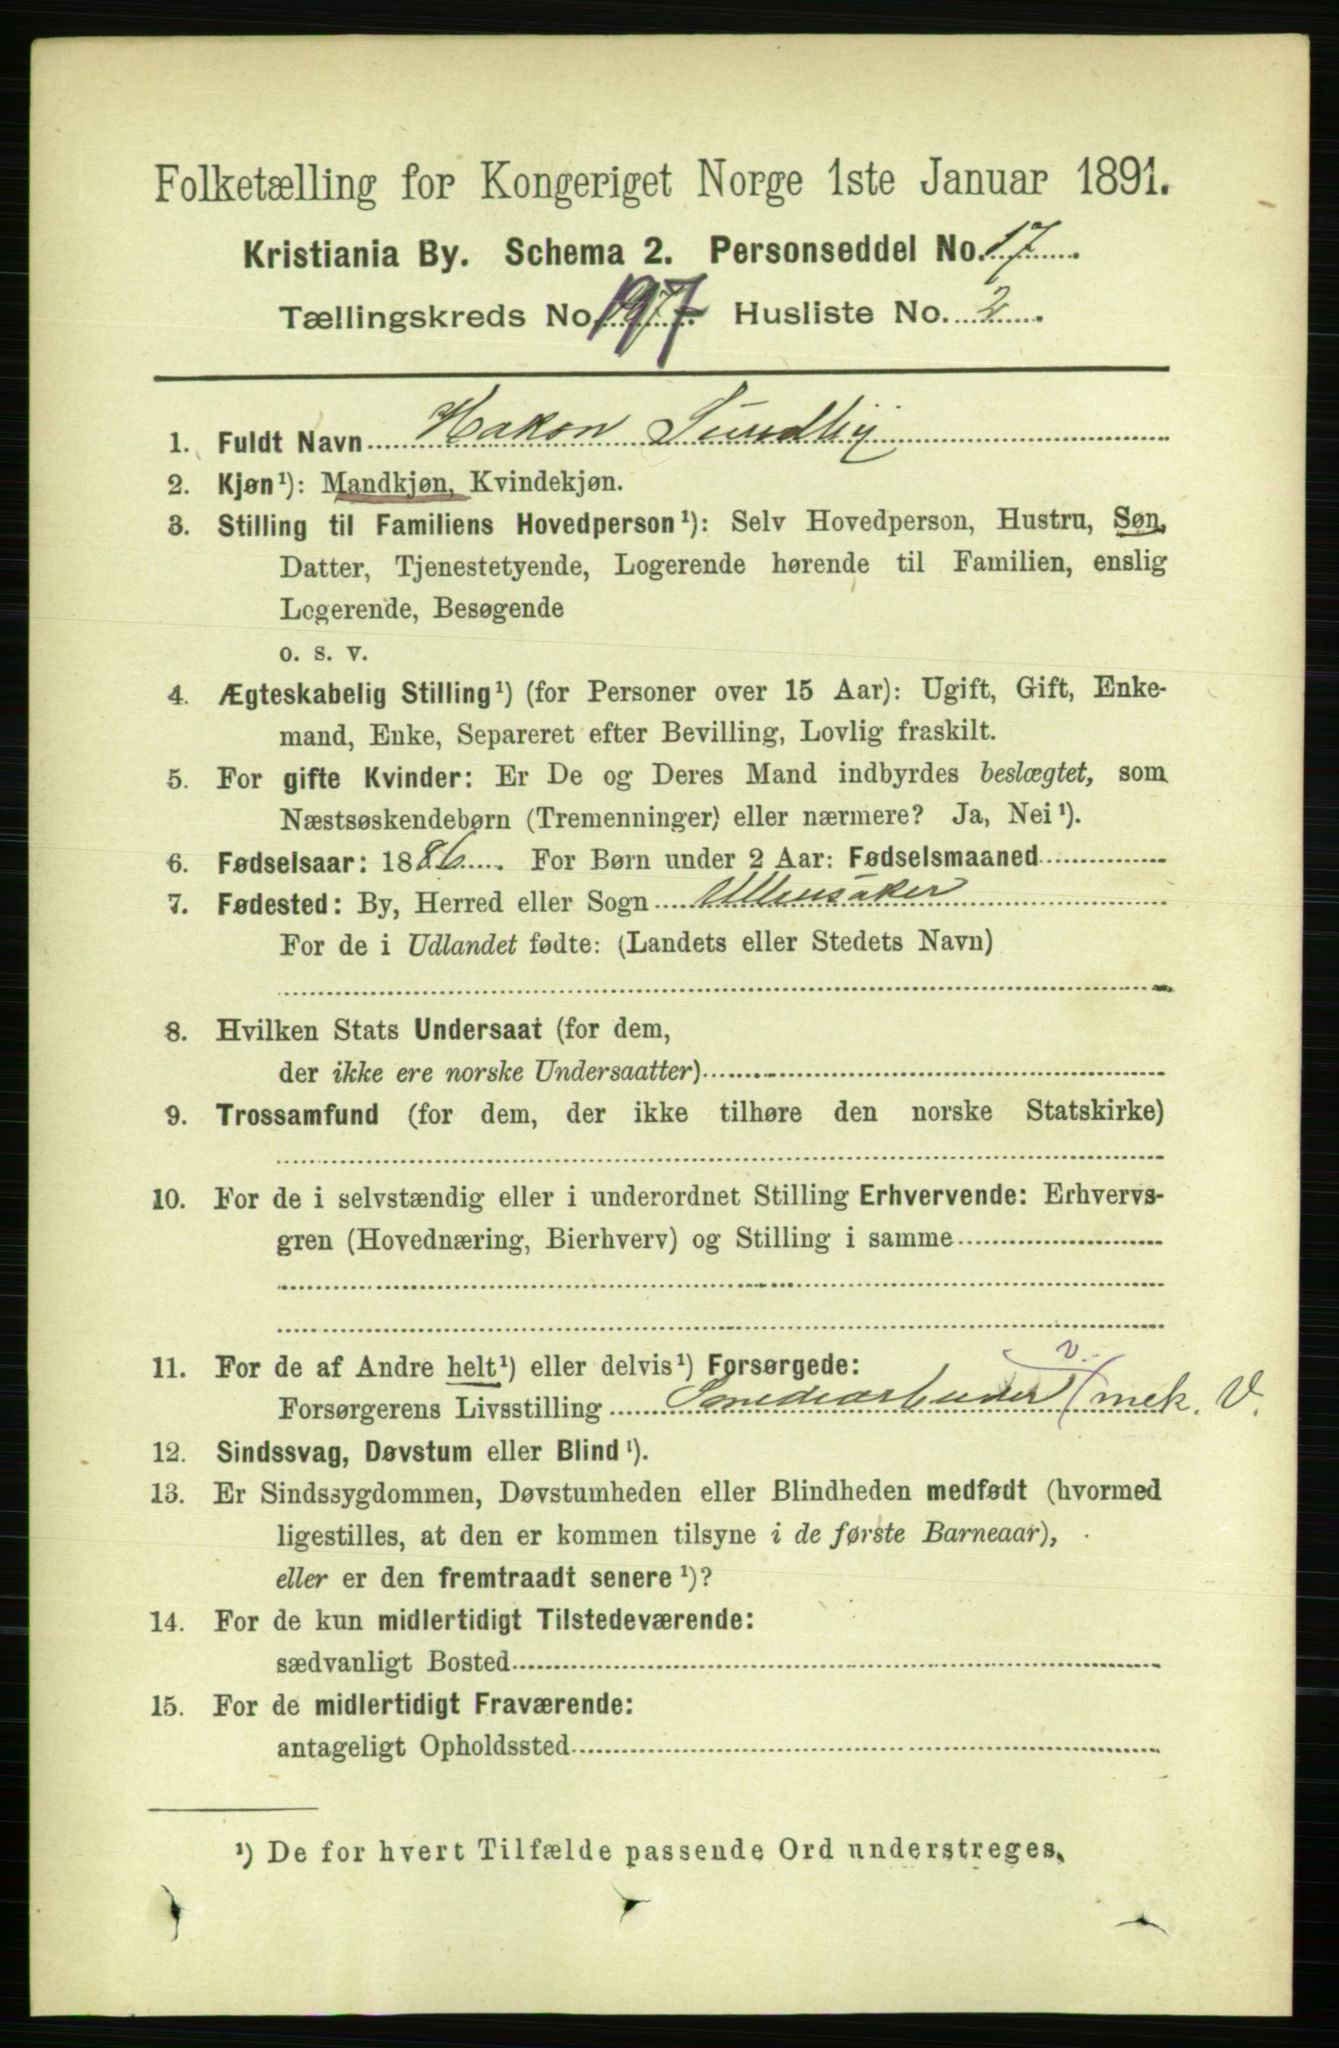 Folketælling for Kongeriget Norge 1ste Januar 1891.
Kristiania By. Schema 2. Personseddel No. 17
Tællingskreds No. 197 Husliste No. 2
1. Fuldt Navn Hakon Sundby
2. Kjøn¹): Mandkjøn, Kvindekjøn.
3. Stilling til Familiens Hovedperson¹): Selv Hovedperson, Hustru, Søn,
Datter, Tjenestetyende, Logerende hørende til Familien, enslig
Logerende, Besøgende
o. s. v.
4. Ægteskabelig Stilling¹) (for Personer over 15 Aar): Ugift, Gift, Enke-
mand, Enke, Separeret efter Bevilling, Lovlig fraskilt.
5. For gifte Kvinder: Er De og Deres Mand indbyrdes beslægtet, som
Næstsøskendebørn (Tremenninger) eller nærmere? Ja, Nei¹).
6. Fødselsaar: 1886. For Børn under 2 Aar: Fødselsmaaned
7. Fødested: By, Herred eller Sogn Ullensaker
For de i Udlandet fødte: (Landets eller Stedets Navn)
8. Hvilken Stats Undersaat (for dem,
der ikke ere norske Undersaatter)
9. Trossamfund (for dem, der ikke tilhøre den norske Statskirke)
10. For de i selvstændig eller i underordnet Stilling Erhvervende: Erhvervs-
gren (Hovednæring, Bierhverv) og Stilling i samme
11. For de af Andre helt¹) eller delvis¹) Forsørgede:
v.
Forsørgerens Livsstilling Smediarbeider / mek. V.
12. Sindssvag, Døvstum eller Blind¹).
13. Er Sindssygdommen, Døvstumheden eller Blindheden medfødt (hvormed
ligestilles, at den er kommen tilsyne i de første Barneaar),
eller er den fremtraadt senere¹)?
14. For de kun midlertidigt Tilstedeværende:
sædvanligt Bosted
15. For de midlertidigt Fraværende:
antageligt Opholdssted
¹) De for hvert Tilfælde passende Ord understreges.